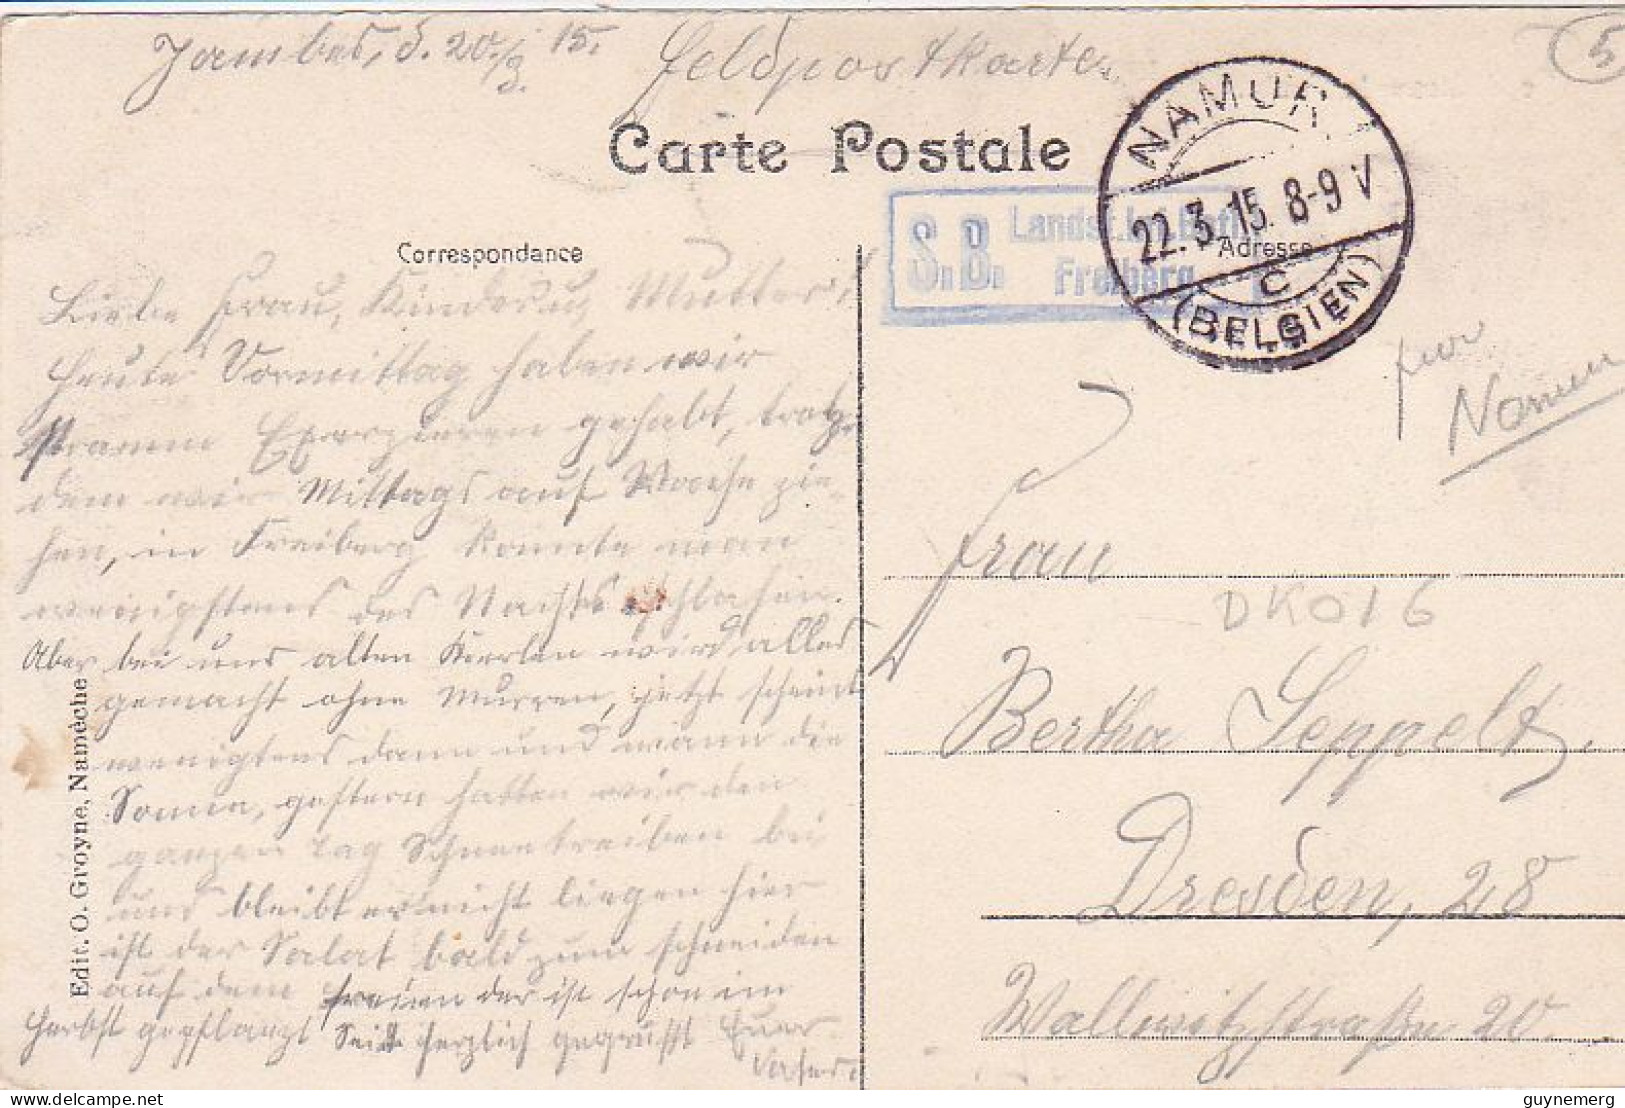 Jambes, d. 20./3. 15.
Feldpostkarte.
5
Carte Postale
NAMUR
22.3.15. 8-9 V
C
(BELGIEN)
S.B. Landst. Inf. Batl.
Freiberg
Correspondance
Adresse
Liebe Frau, Kinder u, Mutter!
Heute Vormittag haben wir
stramm Exerzieren gehabt, trotz-
dem wir Mittags auf Wache zie-
hen, in Freiberg konnte man
wenigstens des Nachts schlafen.
Aber bei uns alten Kerlen wird alles
gemacht ohne Murren, jetzt scheint
wenigtens dann und wann die
Sonne, gestern hatten wir den
ganzen Tag Schneetreiben bei
uns bleibt er nicht liegen hier
ist der Salat bald zum schneiden
auf dem freien der ist schon im
Herbst gepflanzt Seid herzlich gegrüsst Euer
Vater.
Edit. O. Groyne, Namèche
Namur
Frau
DK016
Bertha Seppelt,
Dresden, 28
Wallwitzstraße 20.
delcampe.net
guynemerg